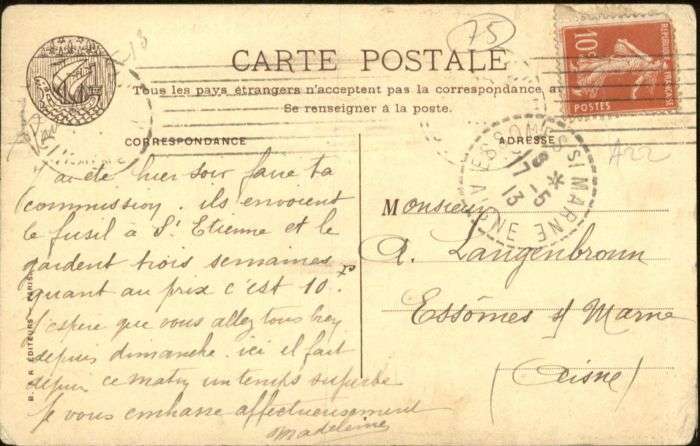 75
CARTE POSTALE
Tous les pays étrangers n'acceptent pas la correspondance au
Se renseigner à la poste.
CORRESPONDANCE
J'ai été hier soir faire ta
commission. ils envoient
le fusil à St Etienne et le
gardent trois semaines
quant au prix c'est 10.
J'espère que vous allez tous bien
depuis dimanche. ici il fait
depuis ce matin un temps superbe
Je vous embrasse affectueusement
Madeleine
ADRESSE
Monsieur
A. Langenbronn
Essômes s/ Marne
(Aisne)
REPUBLIQUE FRANÇAISE
10c
POSTES
ESSOMES S MARNE
AISNE
17 -5
13
A22
EDITEURS - PARIS